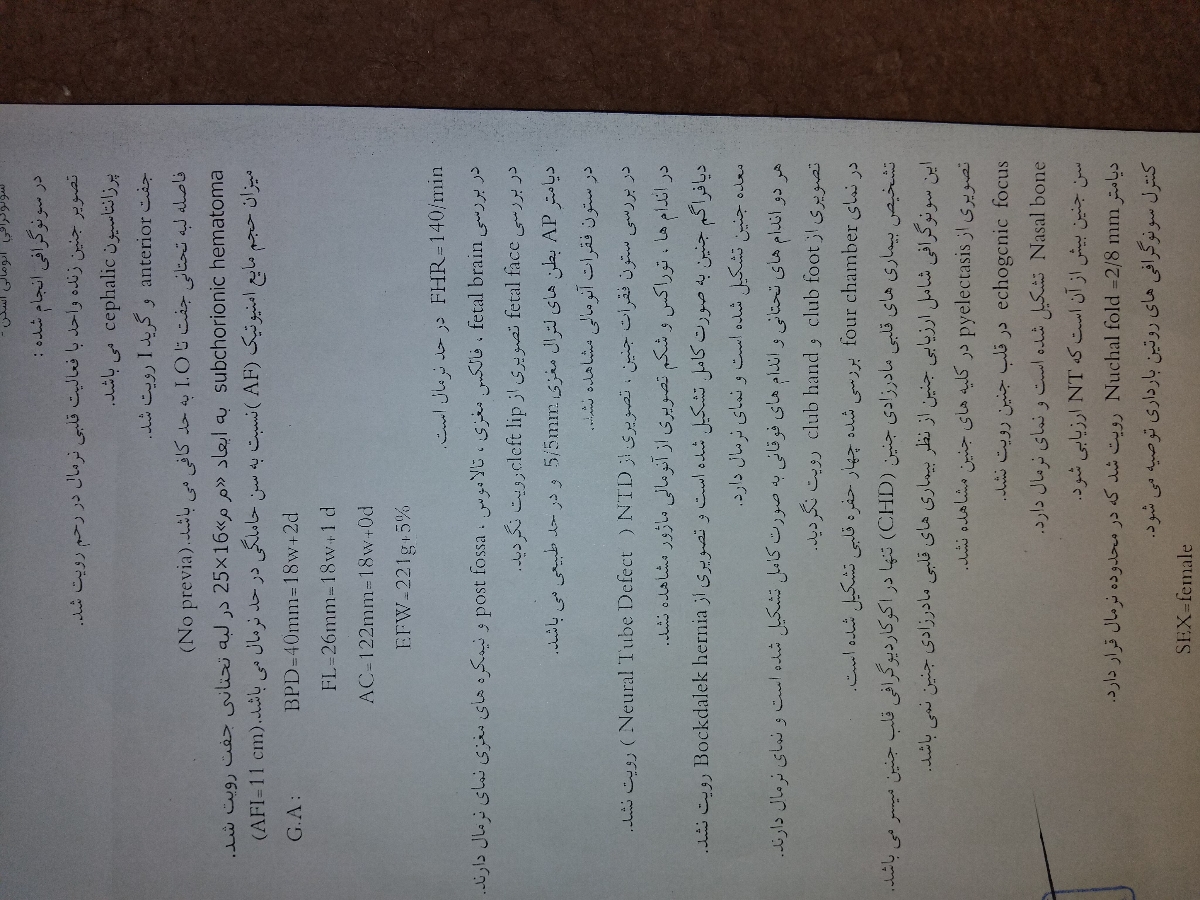 سونوگرافی آنومالی اسکن
در سونوگرافی انجام شده :
تصویر جنین زنده واحد با فعالیت قلبی نرمال در رحم رویت شد.
پرزانتاسیون cephalic می باشد.
جفت anterior و گرید I رویت شد.
فاصله لبه تحتانی جفت تا I.O به حد کافی می باشد.(No previa)
subchorionic hematoma به ابعاد «م م»25x16 در لبه تحتانی جفت رویت شد.
میزان حجم مایع آمنیوتیک (AF )نسبت به سن حاملگی در حد نرمال می باشد.(AFI=11 cm)
G.A : BPD=40mm=18w+2d
FL=26mm=18w+1 d
AC=122mm=18w+0d
EFW=221g±5%
FHR=140/min در حد نرمال است.
در بررسی fetal brain ، فالکس مغزی ، تالاموس ، post fossa و نیمکره های مغزی نمای نرمال دارند.
در بررسی fetal face تصویری از cleft lipرویت نگردید.
دیامتر AP بطن های لترال مغزی 5/5mm و در حد طبیعی می باشد.
در ستون فقرات آنومالی مشاهده نشد.
در بررسی ستون فقرات جنین ، تصویری از NTD ( Neural Tube Defect ) رویت نشد.
در اندام ها ، توراکس و شکم تصویری از آنومالی ماژور مشاهده نشد.
دیافراگم جنین به صورت کامل تشکیل شده است و تصویری از Bockdalek hernia رویت نشد.
معده جنین تشکیل شده است و نمای نرمال دارد.
هر دو اندام های تحتانی و اندام های فوقانی به صورت کامل تشکیل شده است و نمای نرمال دارند.
تصویری از club foot و club hand رویت نگردید.
در نمای four chamber بررسی شده چهار حفره قلبی تشکیل شده است.
تشخیص بیماری های قلبی مادرزادی جنین (CHD) تنها در اکوکاردیوگرافی قلب جنین میسر می باشد.
این سونوگرافی شامل ارزیابی جنین از نظر بیماری های قلبی مادرزادی جنین نمی باشد.
تصویری از pyelectasis در کلیه های جنین مشاهده نشد.
echogenic focus در قلب جنین رویت نشد.
Nasal bone تشکیل شده است و نمای نرمال دارد.
سن جنین بیش از آن است که NT ارزیابی شود.
دیامتر Nuchal fold =2/8 mm رویت شد که در محدوده نرمال قرار دارد.
کنترل سونوگرافی های روتین بارداری توصیه می شود.
SEX=female